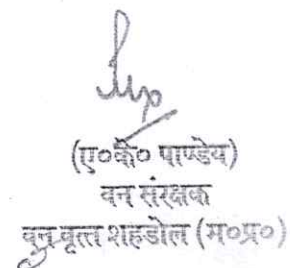 (ए०के० पाण्डेय)
वन संरक्षक
वन वृत्त शहडोल (म०प्र०)